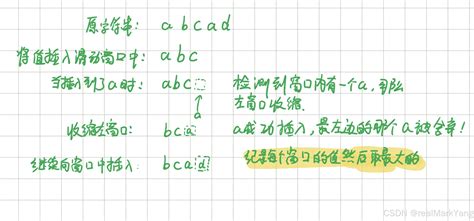 原字符串: a b c a d
将值插入滑动窗口中: a b c
当插入到了a时: a b c 检测到窗口内有一个a,那么
a 左窗口收缩.
收缩左窗口: b c a a成功插入,最左边的那个a被舍弃!
继续向窗口中插入: b c a d 记录每个窗口的值然后取最大的
CSDN @realMarkYang